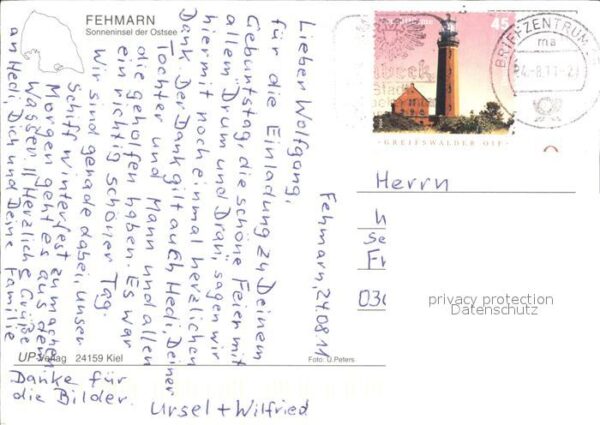 FEHMARN
Sonneninsel der Ostsee
Fehmarn, 24.08.11
Lieber Wolfgang,
für die Einladung zu Deinem
Geburtstag, die schöne Feier mit
allem Drum und Dran, sagen wir
hiermit noch einmal herzlichen
Dank. Der Dank gilt auch Hedi, Deiner
Tochter und Mann und allen
die geholfen haben. Es war
ein richtig schöner Tag.
Wir sind gerade dabei, unser
Schiff winterfest zu machen
Morgen geht es aus dem
Wasser. || Herzlich Grüße
an Hedi, Dich und Deine Familie
Danke für
die Bilder.
Ursel + Wilfried
UP-Verlag 24159 Kiel
Foto: U.Peters
45
GREIFSWALDER OIE
BRIEFZENTRUM
ma
24.-8.11-21
Herrn
privacy protection
Datenschutz